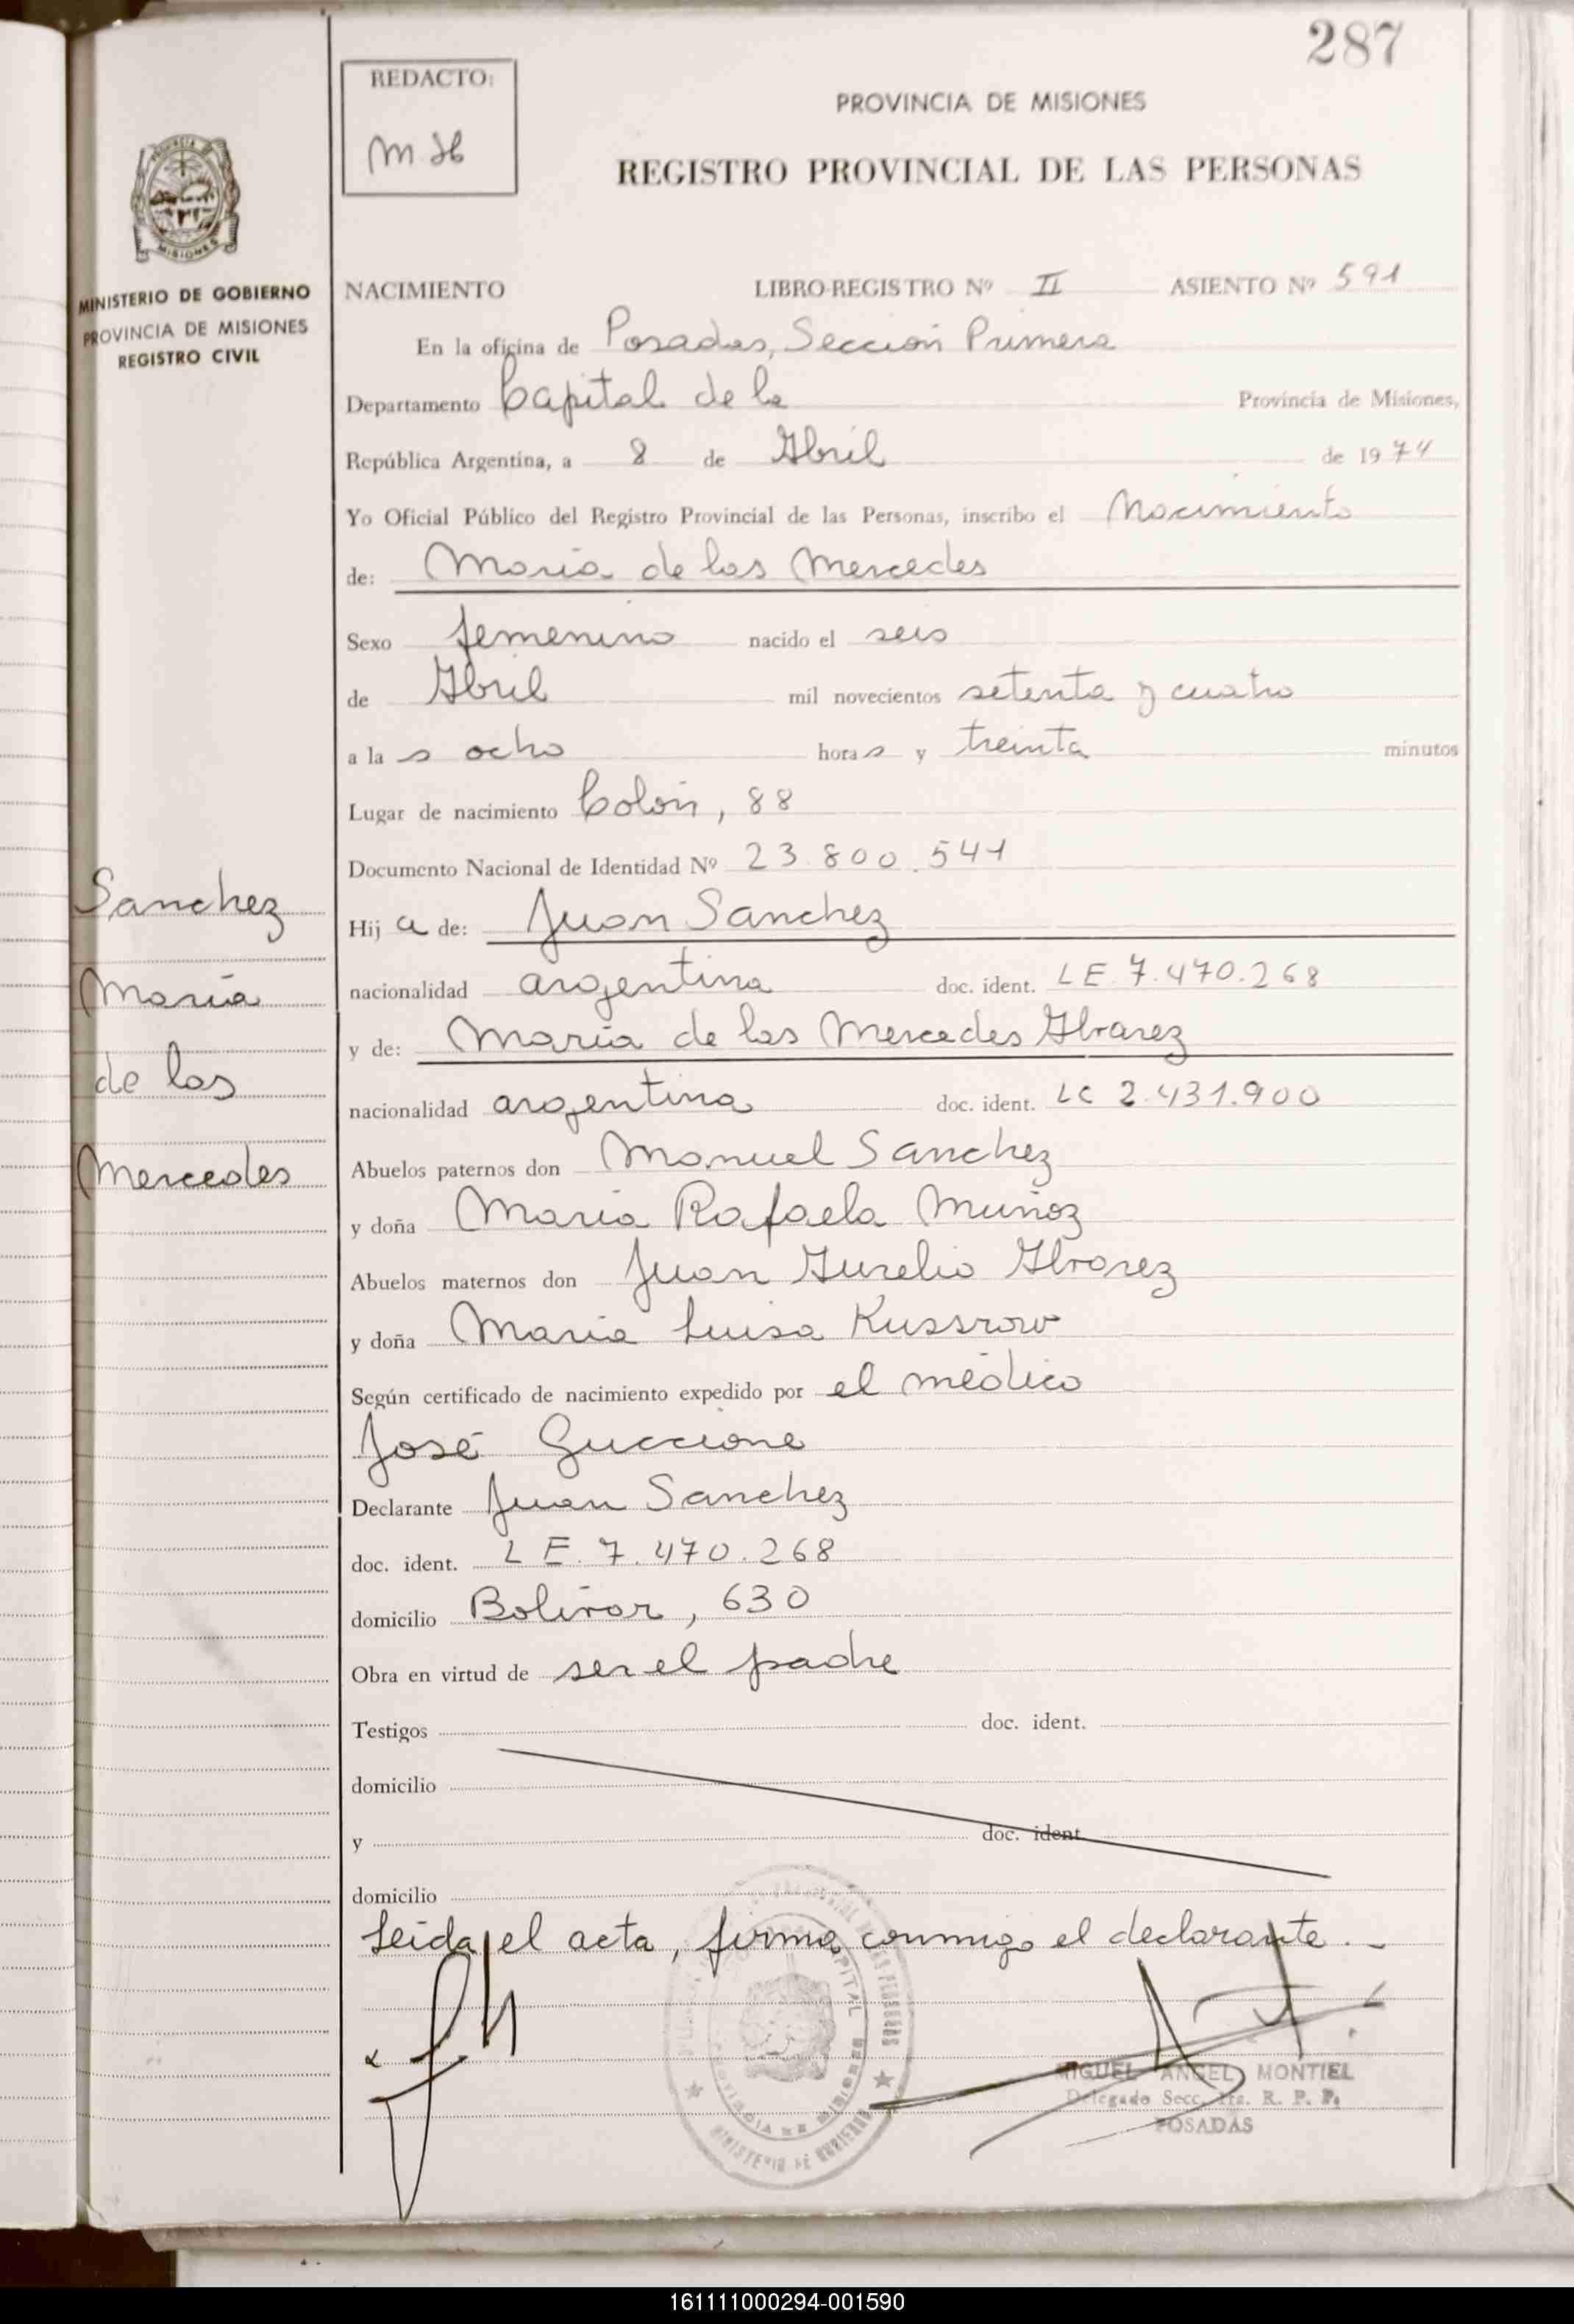 287
REDACTO:
M H
PROVINCIA DE MISIONES
REGISTRO PROVINCIAL DE LAS PERSONAS
MINISTERIO DE GOBIERNO
PROVINCIA DE MISIONES
REGISTRO CIVIL
NACIMIENTO LIBRO-REGISTRO Nº II ASIENTO Nº 591
En la oficina de Posadas, Sección Primera
Departamento Capital de la Provincia de Misiones,
República Argentina, a 8 de Abril de 1974
Yo Oficial Público del Registro Provincial de las Personas, inscribo el Nacimiento
de: María de las Mercedes
Sexo femenino nacido el seis
de Abril mil novecientos setenta y cuatro
a la s ocho hora s y treinta minutos
Lugar de nacimiento Colón, 88
Documento Nacional de Identidad Nº 23.800.541
Sanchez
María
de las
Mercedes
Hij a de: Juan Sanchez
nacionalidad argentina doc. ident. LE 7.470.268
y de: María de las Mercedes Alvarez
nacionalidad argentina doc. ident. LC 2.431.900
Abuelos paternos don Manuel Sanchez
y doña María Rafaela Muñoz
Abuelos maternos don Juan Aurelio Alvarez
y doña María Luisa Kussrow
Según certificado de nacimiento expedido por el médico
José Guccione
Declarante Juan Sanchez
doc. ident. L E. 7.470.268
domicilio Bolívar, 630
Obra en virtud de ser el padre
Testigos doc. ident.
domicilio
y doc. ident.
domicilio
Leída el acta, firma conmigo el declarante.-
MIGUEL ANGEL MONTIEL
Delegado Secc. 1ra. R. P. P.
POSADAS
161111000294-001590